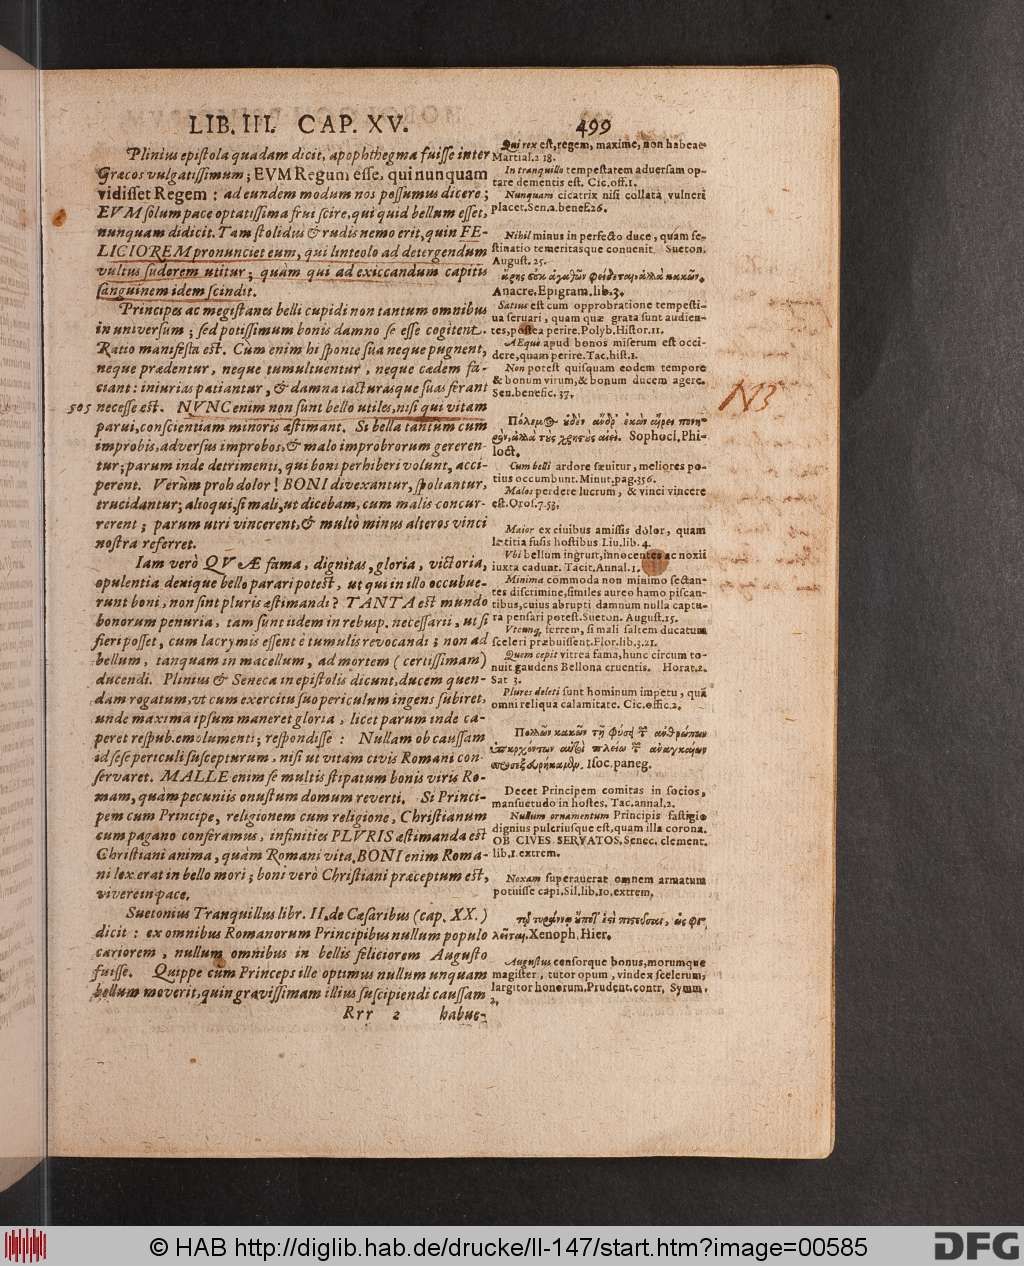 LIB. III. CAP. XV.
499
Plinius epiſtola quadam dicit, apophthegma fuiſſe inter
Græcos vulgatiſſimum; EVM Regum eſſe, qui nunquam
vidiſſet Regem: ad eundem modum nos poſſumus dicere;
EVM ſolum pace optatiſſima frui ſcire, qui quid bellum eſſet,
nunquam didicit. Tam ſtolidus & rudis nemo erit, quin FE-
LICIOREM pronunciet eum, qui linteolo ad detergendum
vultus ſudorem utitur; quàm qui ad exiccandum capitis
ſanguinem idem ſcindit.
Principes ac megiſtanes belli cupidi non tantum omnibus
in univerſum; ſed potiſſimum bonis damno ſe eſſe cogitent.
Ratio manifeſta eſt. Cùm enim hi ſponte ſua neque pugnent,
neque prædentur, neque tumultuentur, neque cædem fa-
ciant: iniurias patiantur, & damna iacturasque ſuas ferant
505 neceſſe eſt. NVNC enim non ſunt bello utiles, niſi qui vitam
parui, conſcientiam minoris æſtimant. Si bella tantum cum
improbis, adverſus improbos, & malo improbrorum gereren-
tur; parum inde detrimenti, qui boni perhiberi volunt, acci-
perent. Verùm proh dolor! BONI divexantur, ſpoliantur,
trucidantur; alioqui, ſi mali, ut dicebam, cum malis concur-
rerent; parum utri vincerent, & multò minus alteros vinci
noſtra referret.
Iam verò QVÆ fama, dignitas, gloria, victoria,
opulentia denique bello parari poteſt, ut qui in illo occubue-
runt boni, non ſint pluris æſtimandi? TANTA eſt mundo
bonorum penuria, tam ſunt iidem in rebusp. neceſſarii, ut ſi
fieri poſſet, cum lacrymis eſſent è tumulis revocandi; non ad
bellum, tanquam in macellum, ad mortem (certiſſimam)
ducendi. Plinius & Seneca in epiſtolis dicunt, ducem quen-
dam rogatum, ut cum exercitu ſuo periculum ingens ſubiret,
unde maxima ipſum maneret gloria, licet parum inde ca-
peret reſpub. emolumenti; reſpondiſſe: Nullam ob cauſſam
id ſeſe periculi ſuſcepturum, niſi ut vitam civis Romani con-
ſervaret. MALLE enim ſe multis ſtipatum bonis viris Ro-
mam, quàm pecuniis onuſtum domum reverti. Si Princi-
pem cum Principe, religionem cum religione, Chriſtianum
cum pagano conferamus, infinities PLVRIS æſtimanda eſt
Chriſtiani anima, quàm Romani vita. BONI enim Roma-
ni lex erat in bello mori; boni verò Chriſtiani præceptum eſt,
vivere in pace.
Suetonius Tranquillus libr. II. de Cæſaribus (cap. XX.)
dicit: ex omnibus Romanorum Principibus nullum populo
cariorem, nullum omnibus in bellis feliciorem Auguſto
fuiſſe. Quippe cùm Princeps ille optimus nullum unquam
bellum moverit, quin graviſſimam illius ſuſcipiendi cauſſam
Rrr 2 habue-
Qui rex eſt, regem, maxime, non habeat
Martial. 2 18.
In tranquillo tempeſtatem adverſam op-
tare dementis eſt. Cic. off. 1.
Nunquam cicatrix niſi collata vulneri
placet. Sen. 2. benef. 26.
Nihil minus in perfecto duce, quàm fe-
ſtinatio temeritasque convenit. Sueton.
Auguſt. 25.
ἄρης οὐκ ἀγαθῶν φείδεται, ἀλλὰ κακῶν.
Anacre. Epigram. lib. 3.
Satius eſt cum opprobratione tempeſti-
ua ſeruari, quam quæ grata ſunt audien-
tes, poſtea perire. Polyb. Hiſtor. 11.
AEque apud bonos miſerum eſt occi-
dere, quam perire. Tac. hiſt. 1.
Non poteſt quiſquam eodem tempore
& bonum virum, & bonum ducem agere.
Sen. benefic. 37.
N3
Sophocl. Phi-
loct.
Cum belli ardore ſæuitur, meliores po-
tius occumbunt. Minut. pag. 356.
Malos perdere lucrum, & vinci vincere
eſt. Oroſ. 7. 53.
Maior ex ciuibus amiſſis dolor, quam
lætitia fuſis hoſtibus Liu. lib. 4.
Vbi bellum ingruit, innocentes ac noxii
iuxta cadunt. Tacit. Annal. 1.
Minima commoda non minimo ſectan-
tes diſcrimine, ſimiles aureo hamo piſcan-
tibus, cuius abrupti damnum nulla captu-
ra penſari poteſt. Sueton. Auguſt. 25.
Vtcunq; ferrem, ſi mali ſaltem ducatum
ſceleri præbuiſſent. Flor. lib. 3. 21.
Quem cepit vitrea fama, hunc circum to-
nuit gaudens Bellona cruentis. Horat. 2.
Sat 3.
Plures deleti ſunt hominum impetu, quã
omni reliqua calamitate. Cic. offic. 2.
Πολλῶν κακῶν τῇ φύσει τ̃ ἀνθρώπων
Iſoc. paneg.
Decet Principem comitas in ſocios,
manſuetudo in hoſtes. Tac. annal. 2.
Nullum ornamentum Principis faſtigio
dignius pulcriuſque eſt, quam illa corona.
OB CIVES SERVATOS, Senec. clement.
lib. 1. extrem.
Noxam ſuperauerat omnem armatum
potuiſſe capi. Sil. lib. 10. extrem.
Xenoph. Hier.
Auguſtus cenſorque bonus, morumque
magiſter, tutor opum, vindex ſcelerum,
largitor honorum. Prudent. contr. Symm.
2.
© HAB http://diglib.hab.de/drucke/ll-147/start.htm?image=00585
DFG